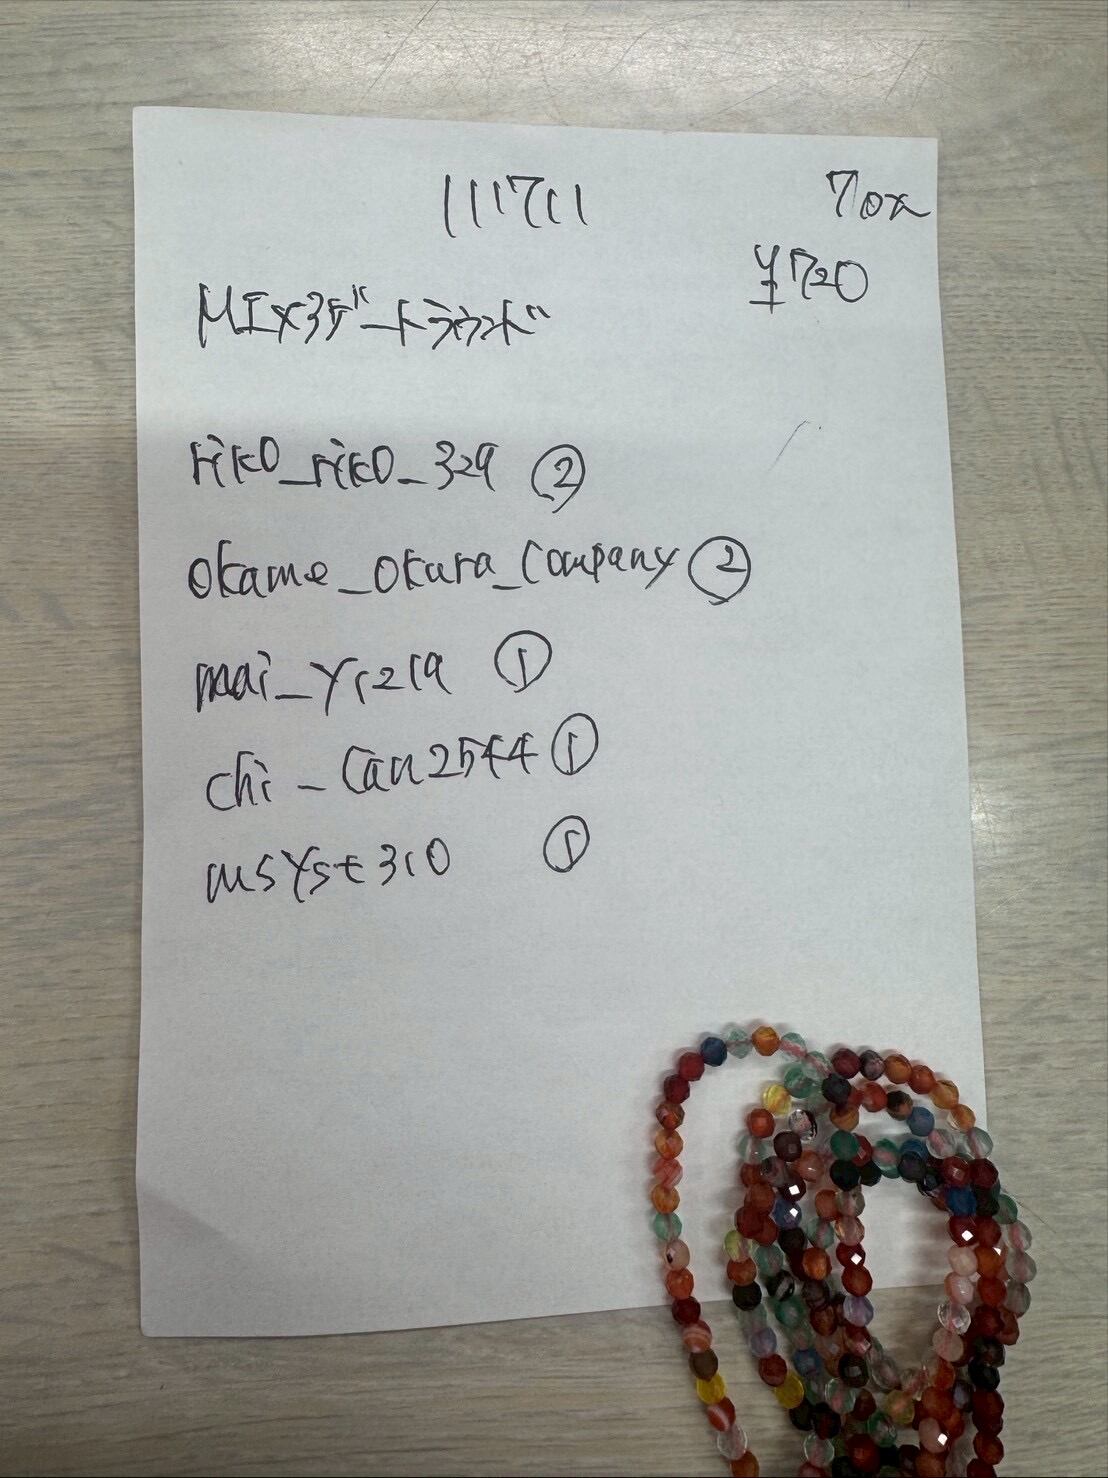 111711
7コ入
¥720
MIX3ゲートラウンド
riko_riko_329 ②
okame_okura_company ②
mai_yr219 ①
chi_can2544 ①
msyst310 ①